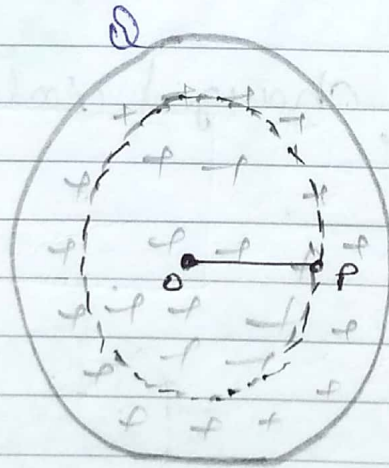 Q
O
P